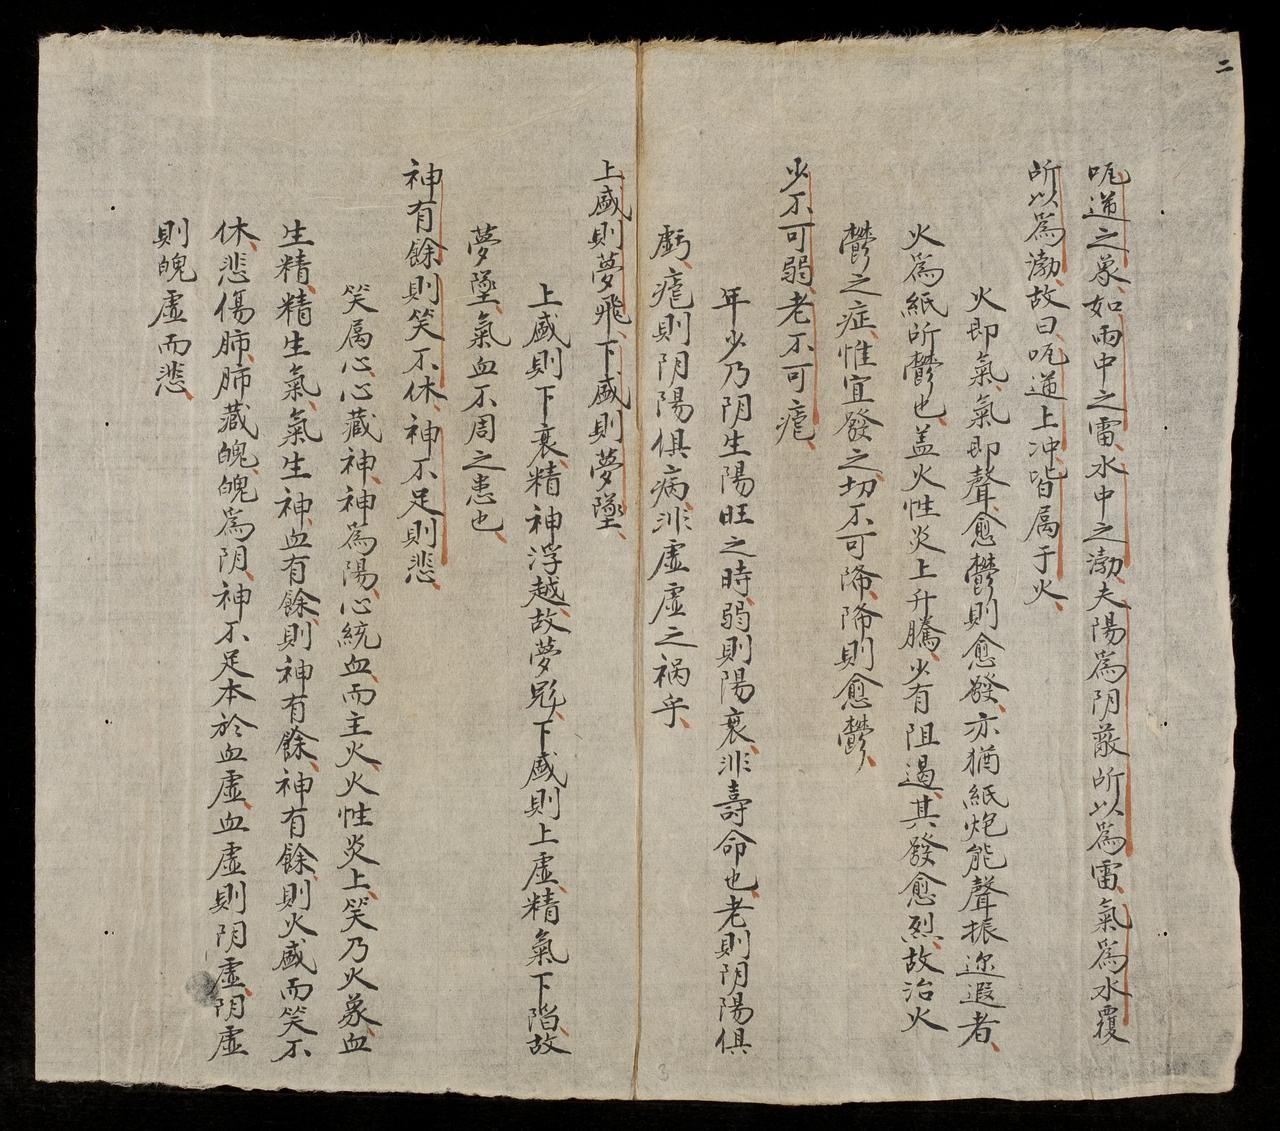 二
呃逆之象如雨中之雷水中之渤夫陽為阴蔽所以為雷氣為水覆
所以為渤故曰呃逆上冲皆属于火
火即氣氣即聲愈鬱則愈發亦猶紙炮能聲振迩遐者
火為紙所鬱也盖火性炎上升騰少有阻遏其發愈烈故治火
鬱之症惟宜發之切不可降降則愈鬱
少不可弱老不可瘧
年少乃阴生陽旺之時弱則陽衰非壽命也老則阴陽俱
虧瘧則阴陽俱病非虚虚之祸乎
上盛則夢飛下盛則夢墜
上盛則下衰精神浮越故夢飛下盛則上虚精氣下陷故
夢墜氣血不周之患也
神有餘則笑不休神不足則悲
笑属心心藏神神為陽心統血而主火火性炎上笑乃火象血
生精精生氣氣生神血有餘則神有餘神有餘則火盛而笑不
休悲傷肺肺藏魄魄為阴神不足本於血虚血虚則阴虚阴虚
則魄虚而悲
3